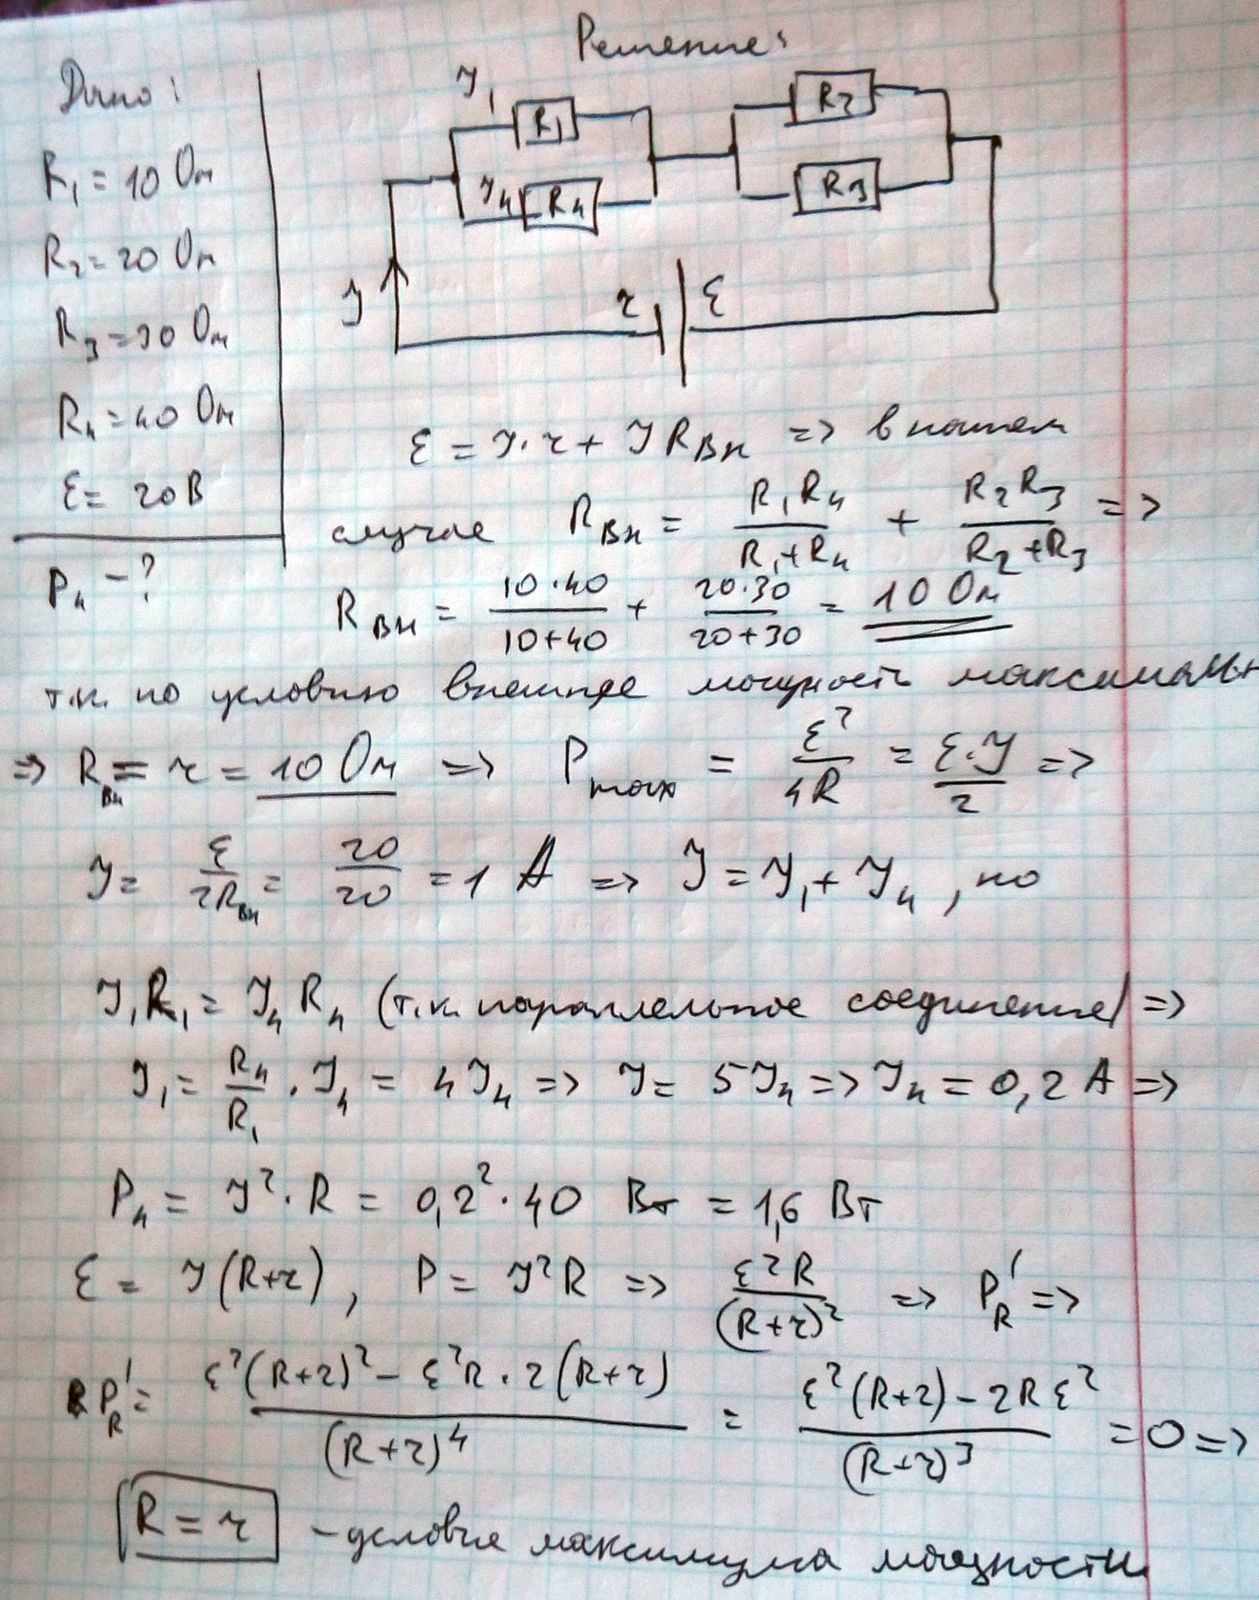 Решение:
Дано:
R₁ = 10 Ом
R₂ = 20 Ом
R₃ = 30 Ом
R₄ = 40 Ом
ℰ = 20 В
P₄ – ?
J₁
R₁
J₄
R₄
R₂
R₃
J
r
ℰ
ℰ = J·r + J Rвн => в нашем
случае Rвн = R₁R₄/(R₁+R₄) + R₂R₃/(R₂+R₃) =>
Rвн = 10·40/(10+40) + 20·30/(20+30) = 10 Ом
т.к. по условию внешняя мощность максимальн
=> Rвн = r = 10 Ом => Pmax = ℰ²/4R = ℰ·J/2 =>
J = ℰ/2Rвн = 20/20 = 1 А => J = J₁ + J₄, но
J₁R₁ = J₄R₄ (т.к. параллельное соединение) =>
J₁ = R₄/R₁ · J₄ = 4J₄ => J = 5J₄ => J₄ = 0,2 А =>
P₄ = J²·R = 0,2²·40 Вт = 1,6 Вт
ℰ = J(R+r), P = J²R => ℰ²R/(R+r)² => P'R =>
P'R = (ℰ²(R+r)² – ℰ²R·2(R+r))/(R+r)⁴ = (ℰ²(R+r) – 2Rℰ²)/(R+r)³ = 0 =>
R = r – условие максимума мощности